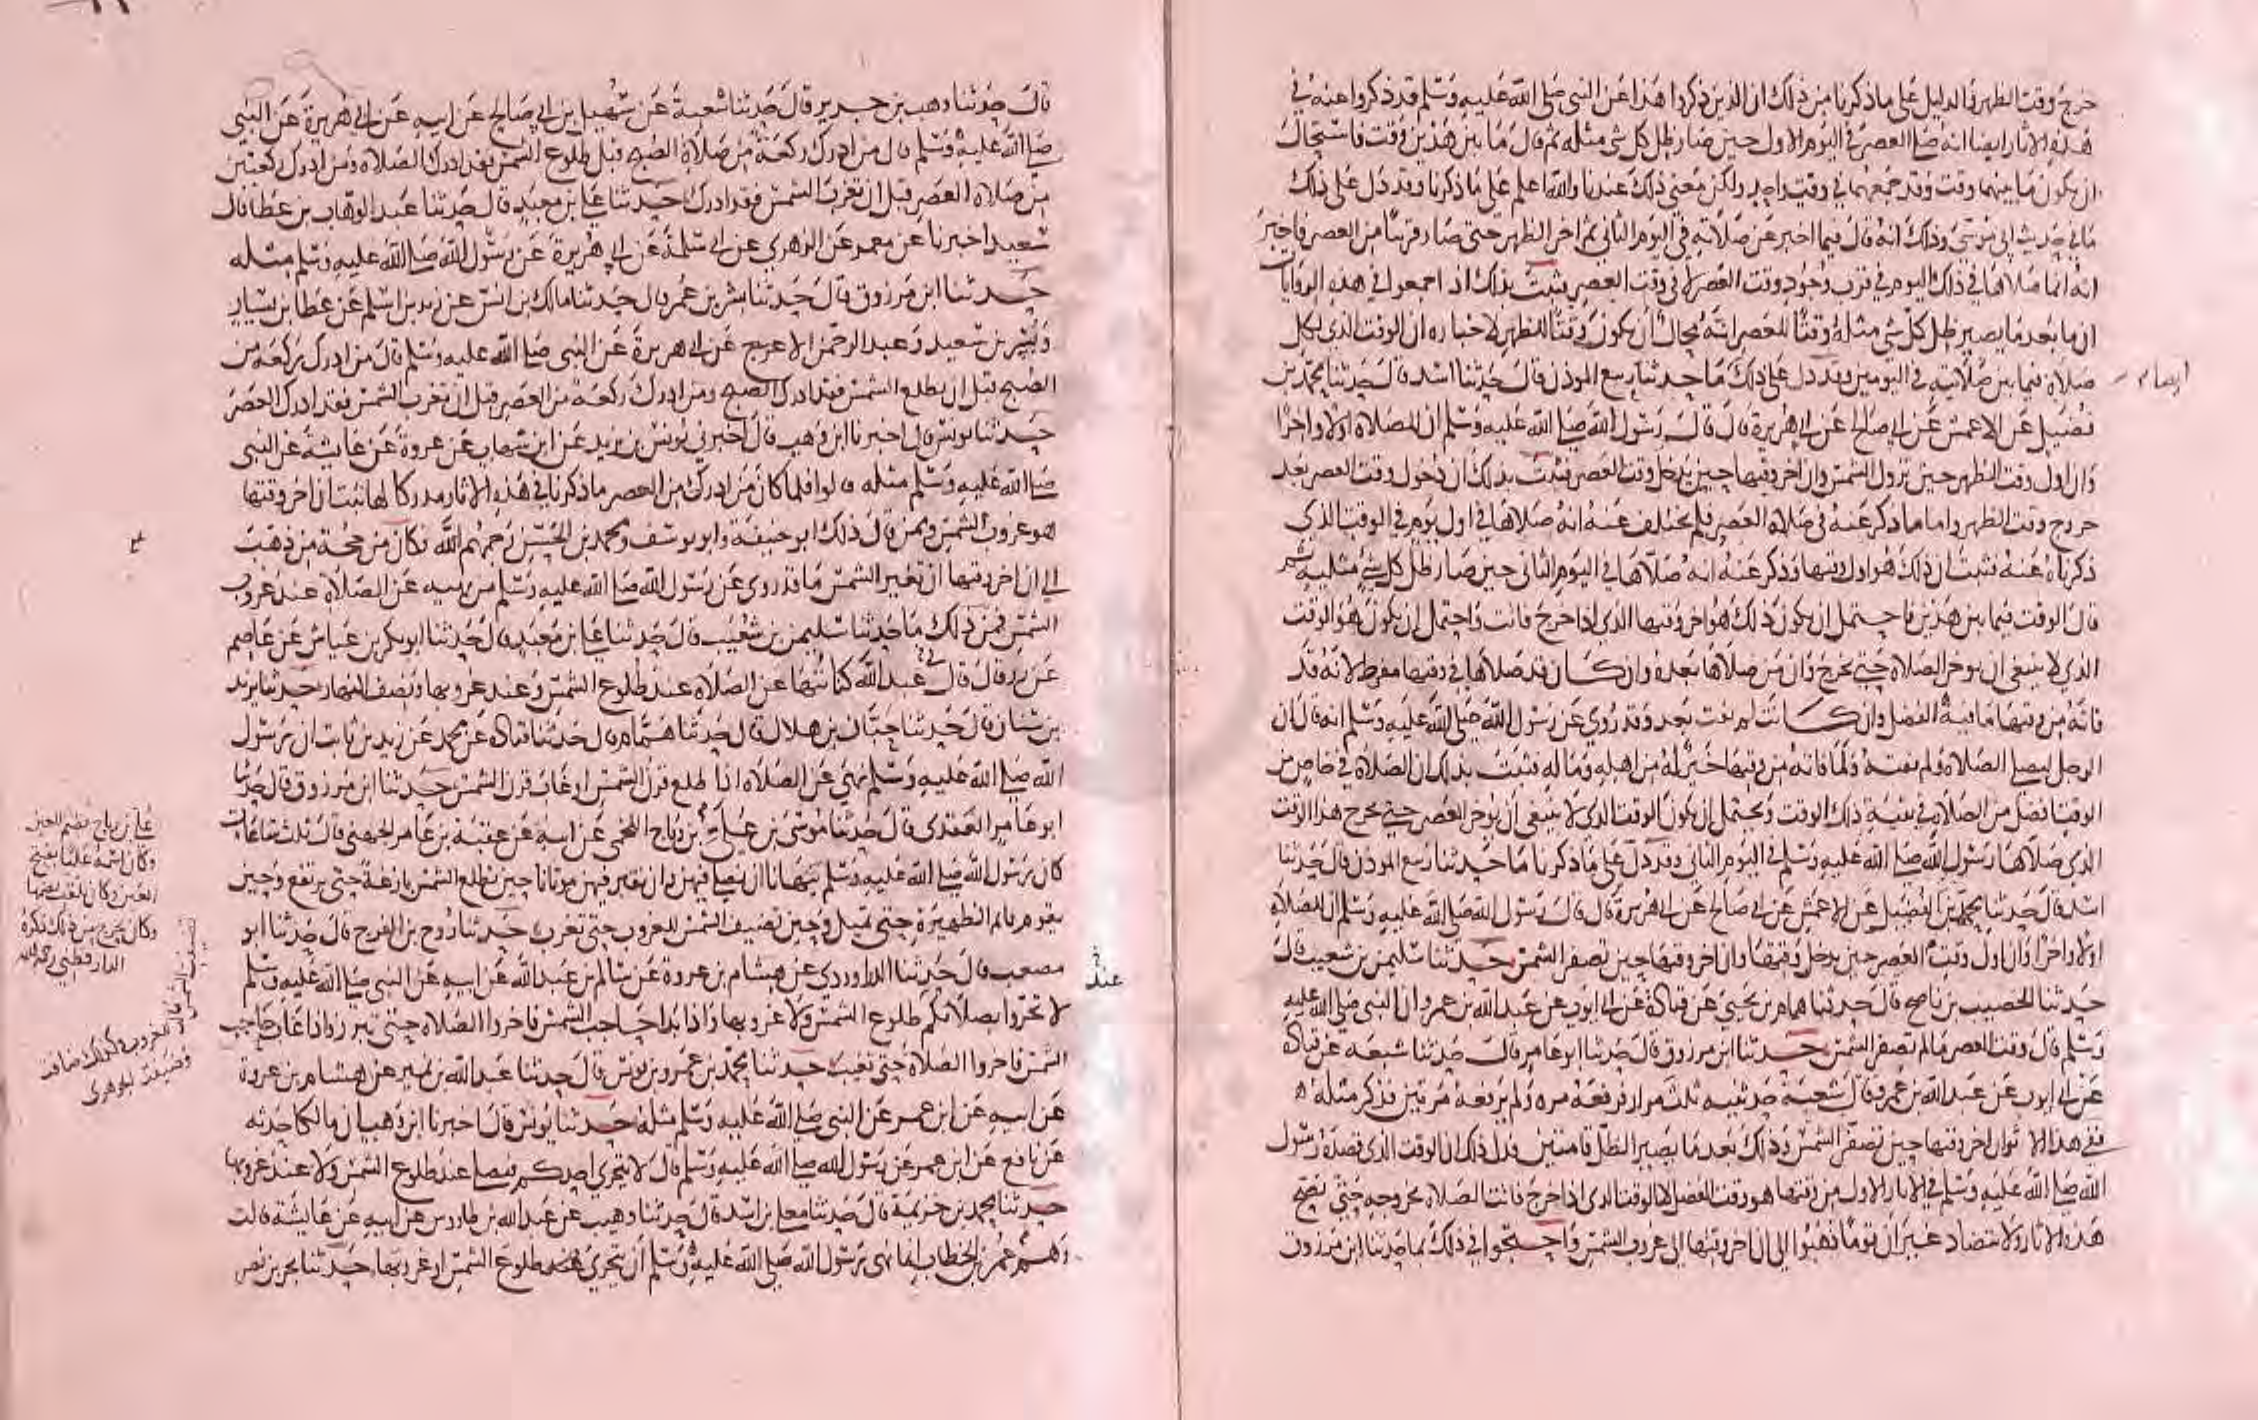 خرج وقت الظهر فالدليل على ما ذكرنا من ذلك ان الذين ذكروا هذا عن النبي صلى الله عليه وسلم قد ذكروا عنه في
هذه الاثار ايضا انه صلى العصر في اليوم الاول حين صار ظل كل شي مثله ثم قال ما بين هذين وقت فاستحال
ان يكون ما بينهما وقت وقد جمعهما في وقت واحد ولكن معنى ذلك عندنا والله اعلم على ما ذكرنا وقد دل على ذلك
ما في حديث ابي موسى وذلك انه قال فيما اخبر عن صلاته في اليوم الثاني ثم اخر الظهر حتى صار قريبا من العصر فاخبر
انه انما صلاها في ذلك اليوم في قرب دخول وقت العصر لا في وقت العصر فثبت بذلك اذ اجمعوا في هذه الروايات
ان ما بعد ما يصير ظل كل شي مثله وقتا للعصر انه محال ان يكون وقتا للظهر لاخباره ان الوقت الذي لكل
صلاة فيما بين صلاتيه في اليومين وقد دل على ذلك ما حدثنا ربيع الموذن قال حدثنا اسد قال حدثنا محمد بن
ايضا
فضيل عن الاعمش عن ابي صالح عن ابي هريرة قال قال رسول الله صلى الله عليه وسلم ان للصلاة اولا واخرا
وان اول وقت الظهر حين تزول الشمس وان اخر وقتها حين يدخل وقت العصر فثبت بذلك ان دخول وقت العصر بعد
خروج وقت الظهر واما ما ذكر عنه في صلاة العصر فلم يختلف عنه انه صلاها في اول يوم في الوقت الذي
ذكرناه عنه فثبت ان ذلك هو اول وقتها وذكر عنه انه صلاها في اليوم الثاني حين صار ظل كل شي مثليه ثم
قال الوقت فيما بين هذين فاحتمل ان يكون ذلك هو اخر وقتها الذي اذا خرج فاتت واحتمل ان يكون هو الوقت
الذي لا ينبغي ان يوخر الصلاة حتى يخرج وان من صلاها بعده وان كان قد صلاها في وقتها مفرط لانه قد
فاته من وقتها ما فيه الفضل وان كانت لم تفت بعد وقد روي عن رسول الله صلى الله عليه وسلم انه قال ان
الرجل ليصلي الصلاة ولم تفته ولما فاته من وقتها خير له من اهله وماله فثبت بذلك ان الصلاة في خاص من
الوقت افضل من الصلاة في بقية ذلك الوقت ويحتمل ان يكون الوقت الذي لا ينبغي ان يوخر العصر حتى يخرج هذا الوقت
الذي صلاها رسول الله صلى الله عليه وسلم في اليوم الثاني وقد دل على ما ذكرنا ما حدثنا ربيع الموذن قال حدثنا
اسد قال حدثنا محمد بن الفضيل عن الاعمش عن ابي صالح عن ابي هريرة قال قال رسول الله صلى الله عليه وسلم ان للصلاة
اولا واخرا وان اول وقت العصر حين يدخل وقتها وان اخر وقتها حين تصفر الشمس حدثنا سليمن بن شعيب قال
حدثنا الخصيب بن ناصح قال حدثنا همام بن يحيى عن قتادة عن ابي ايوب عن عبد الله بن عمرو ان النبي صلى الله عليه
وسلم قال وقت العصر ما لم تصفر الشمس حدثنا ابن مرزوق قال حدثنا ابو عامر قال حدثنا شعبة عن قتادة
عن ابي ايوب عن عبد الله بن عمرو قال شعبة حدثنيه ثلث مرار فرفعه مرة ولم يرفعه مرتين فذكر مثله
ففي هذا الاثر ان اخر وقتها حين تصفر الشمس وذلك بعد ما يصير الظل قامتين فدل ذلك ان الوقت الذي قصده رسول
الله صلى الله عليه وسلم في الاثار الاول من وقتها هو وقت الفضل لا الوقت الذي اذا خرج فاتت الصلاة بخروجه حتى تصح
هذه الاثار ولا تتضاد غير ان قوما ذهبوا الى ان اخر وقتها الى غروب الشمس واحتجوا في ذلك بما حدثنا ابن مرزوق
قال حدثنا وهب بن جرير قال حدثنا شعبة عن سهيل بن ابي صالح عن ابيه عن ابي هريرة عن النبي
صلى الله عليه وسلم قال من ادرك ركعة من صلاة الصبح قبل طلوع الشمس فقد ادرك الصلاة ومن ادرك ركعتين
من صلاة العصر قبل ان تغرب الشمس فقد ادرك حدثنا علي بن معبد قال حدثنا عبد الوهاب بن عطا قال
سعيد اخبرنا عن معمر عن الزهري عن ابي سلمة عن ابي هريرة عن رسول الله صلى الله عليه وسلم مثله
حدثنا ابن مرزوق قال حدثنا بشر بن عمر قال حدثنا مالك بن انس عن زيد بن اسلم عن عطا بن يسار
وبسر بن سعيد وعبد الرحمن الاعرج عن ابي هريرة عن النبي صلى الله عليه وسلم قال من ادرك ركعة من
الصبح قبل ان يطلع الشمس فقد ادرك الصبح ومن ادرك ركعة من العصر قبل ان تغرب الشمس فقد ادرك العصر
حدثنا يونس قال اخبرنا ابن وهب قال اخبرني يونس بن يزيد عن ابن شهاب عن عروة عن عايشة عن النبي
صلى الله عليه وسلم مثله قالوا فلما كان من ادرك من العصر ما ذكرنا في هذه الاثار مدركا لها ثبت ان اخر وقتها
هو غروب الشمس وممن قال ذلك ابو حنيفة وابو يوسف ومحمد بن الحسن رحمهم الله فكان من حجة من ذهب
الى ان اخر وقتها ان تغير الشمس ما قد روي عن رسول الله صلى الله عليه وسلم من نهيه عن الصلاة عند غروب
الشمس فمن ذلك ما حدثنا سليمن بن شعيب قال حدثنا علي بن معبد قال حدثنا ابو بكر بن عياش عن عاصم
عن زر قال قال لي عبد الله كنا ننهى عن الصلاة عند طلوع الشمس وعند غروبها ونصف النهار حدثنا يزيد
بن سنان قال حدثنا حبان بن هلال قال حدثنا همام قال حدثنا قتادة عن محمد عن زيد بن ثابت ان رسول
الله صلى الله عليه وسلم نهى عن الصلاة اذا طلع قرن الشمس او غاب قرن الشمس حدثنا ابن مرزوق قال حدثنا
ابو عامر العقدي قال حدثنا موسى بن علي بن رباح اللخمي عن ابيه عن عقبة بن عامر الجهني قال ثلث ساعات
كان رسول الله صلى الله عليه وسلم ينهانا ان نصلي فيهن وان نقبر فيهن موتانا حين تطلع الشمس بازغة حتى ترتفع وحين
يقوم قائم الظهيرة حتى تميل وحين تضيف الشمس للغروب حتى تغرب حدثنا روح بن الفرج قال حدثنا ابو
مصعب قال حدثنا الدراوردي عن هشام بن عروة عن سالم بن عبد الله عن ابيه عن النبي صلى الله عليه وسلم
لا تحروا بصلاتكم طلوع الشمس ولا غروبها واذا بدا حاجب الشمس فاخروا الصلاة حتى تبرز واذا غاب حاجب
الشمس فاخروا الصلاة حتى تغيب حدثنا محمد بن عمرو بن يونس قال حدثنا عبد الله بن نمير عن هشام بن عروة
عن ابيه عن ابن عمر عن النبي صلى الله عليه وسلم مثله حدثنا يونس قال اخبرنا ابن وهب ان مالكا حدثه
عن نافع عن ابن عمر عن رسول الله صلى الله عليه وسلم قال لا يتحرى احدكم فيصلي عند طلوع الشمس ولا عند غروبها
حدثنا محمد بن خزيمة قال حدثنا معلى بن اسد قال حدثنا وهيب عن عبد الله بن طاوس عن ابيه عن عايشة قالت
وهم عمر بن الخطاب انما نهى رسول الله صلى الله عليه وسلم ان يتحرى طلوع الشمس او غروبها حدثنا بحر بن نصر
عند
علي بن رباح بضم العين
وكان اسمه عليا بفتح
العين وكان يلقب بضمها
وكان يحرج من ذلك ذكره
الدارقطني رحمه الله